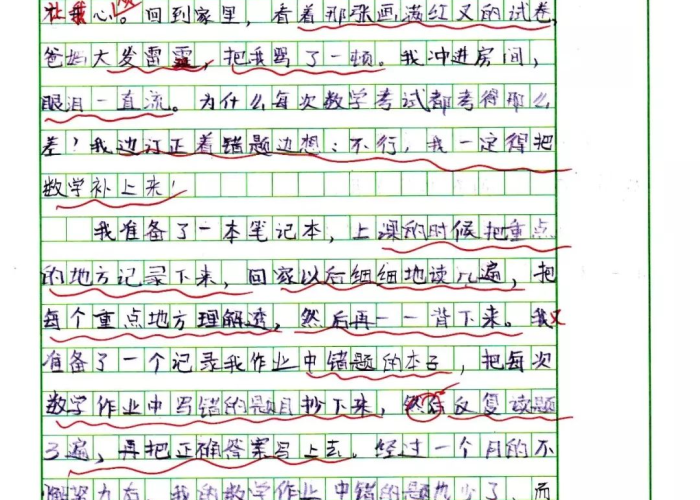 在我心。回到家里，看着那张画满红叉的试卷，
爸妈大发雷霆，把我骂了一顿。我冲进房间，
眼泪一直流。为什么每次数学考试都考得那么
差！我边订正着错题边想：不行，我一定得把
数学补上来！
我准备了一本笔记本，上课的时候把重点
的地方记录下来，回家以后细细地读几遍，把
每个重点地方理解透，然后再一一背下来。我又
准备了一个记录我作业中错题的本子，把每次
数学作业中写错的题目抄下来，然后反复读题
3遍，再把正确答案写上去。经过一个月的不
懈努力有，我的数学作业中错的题也少了，而